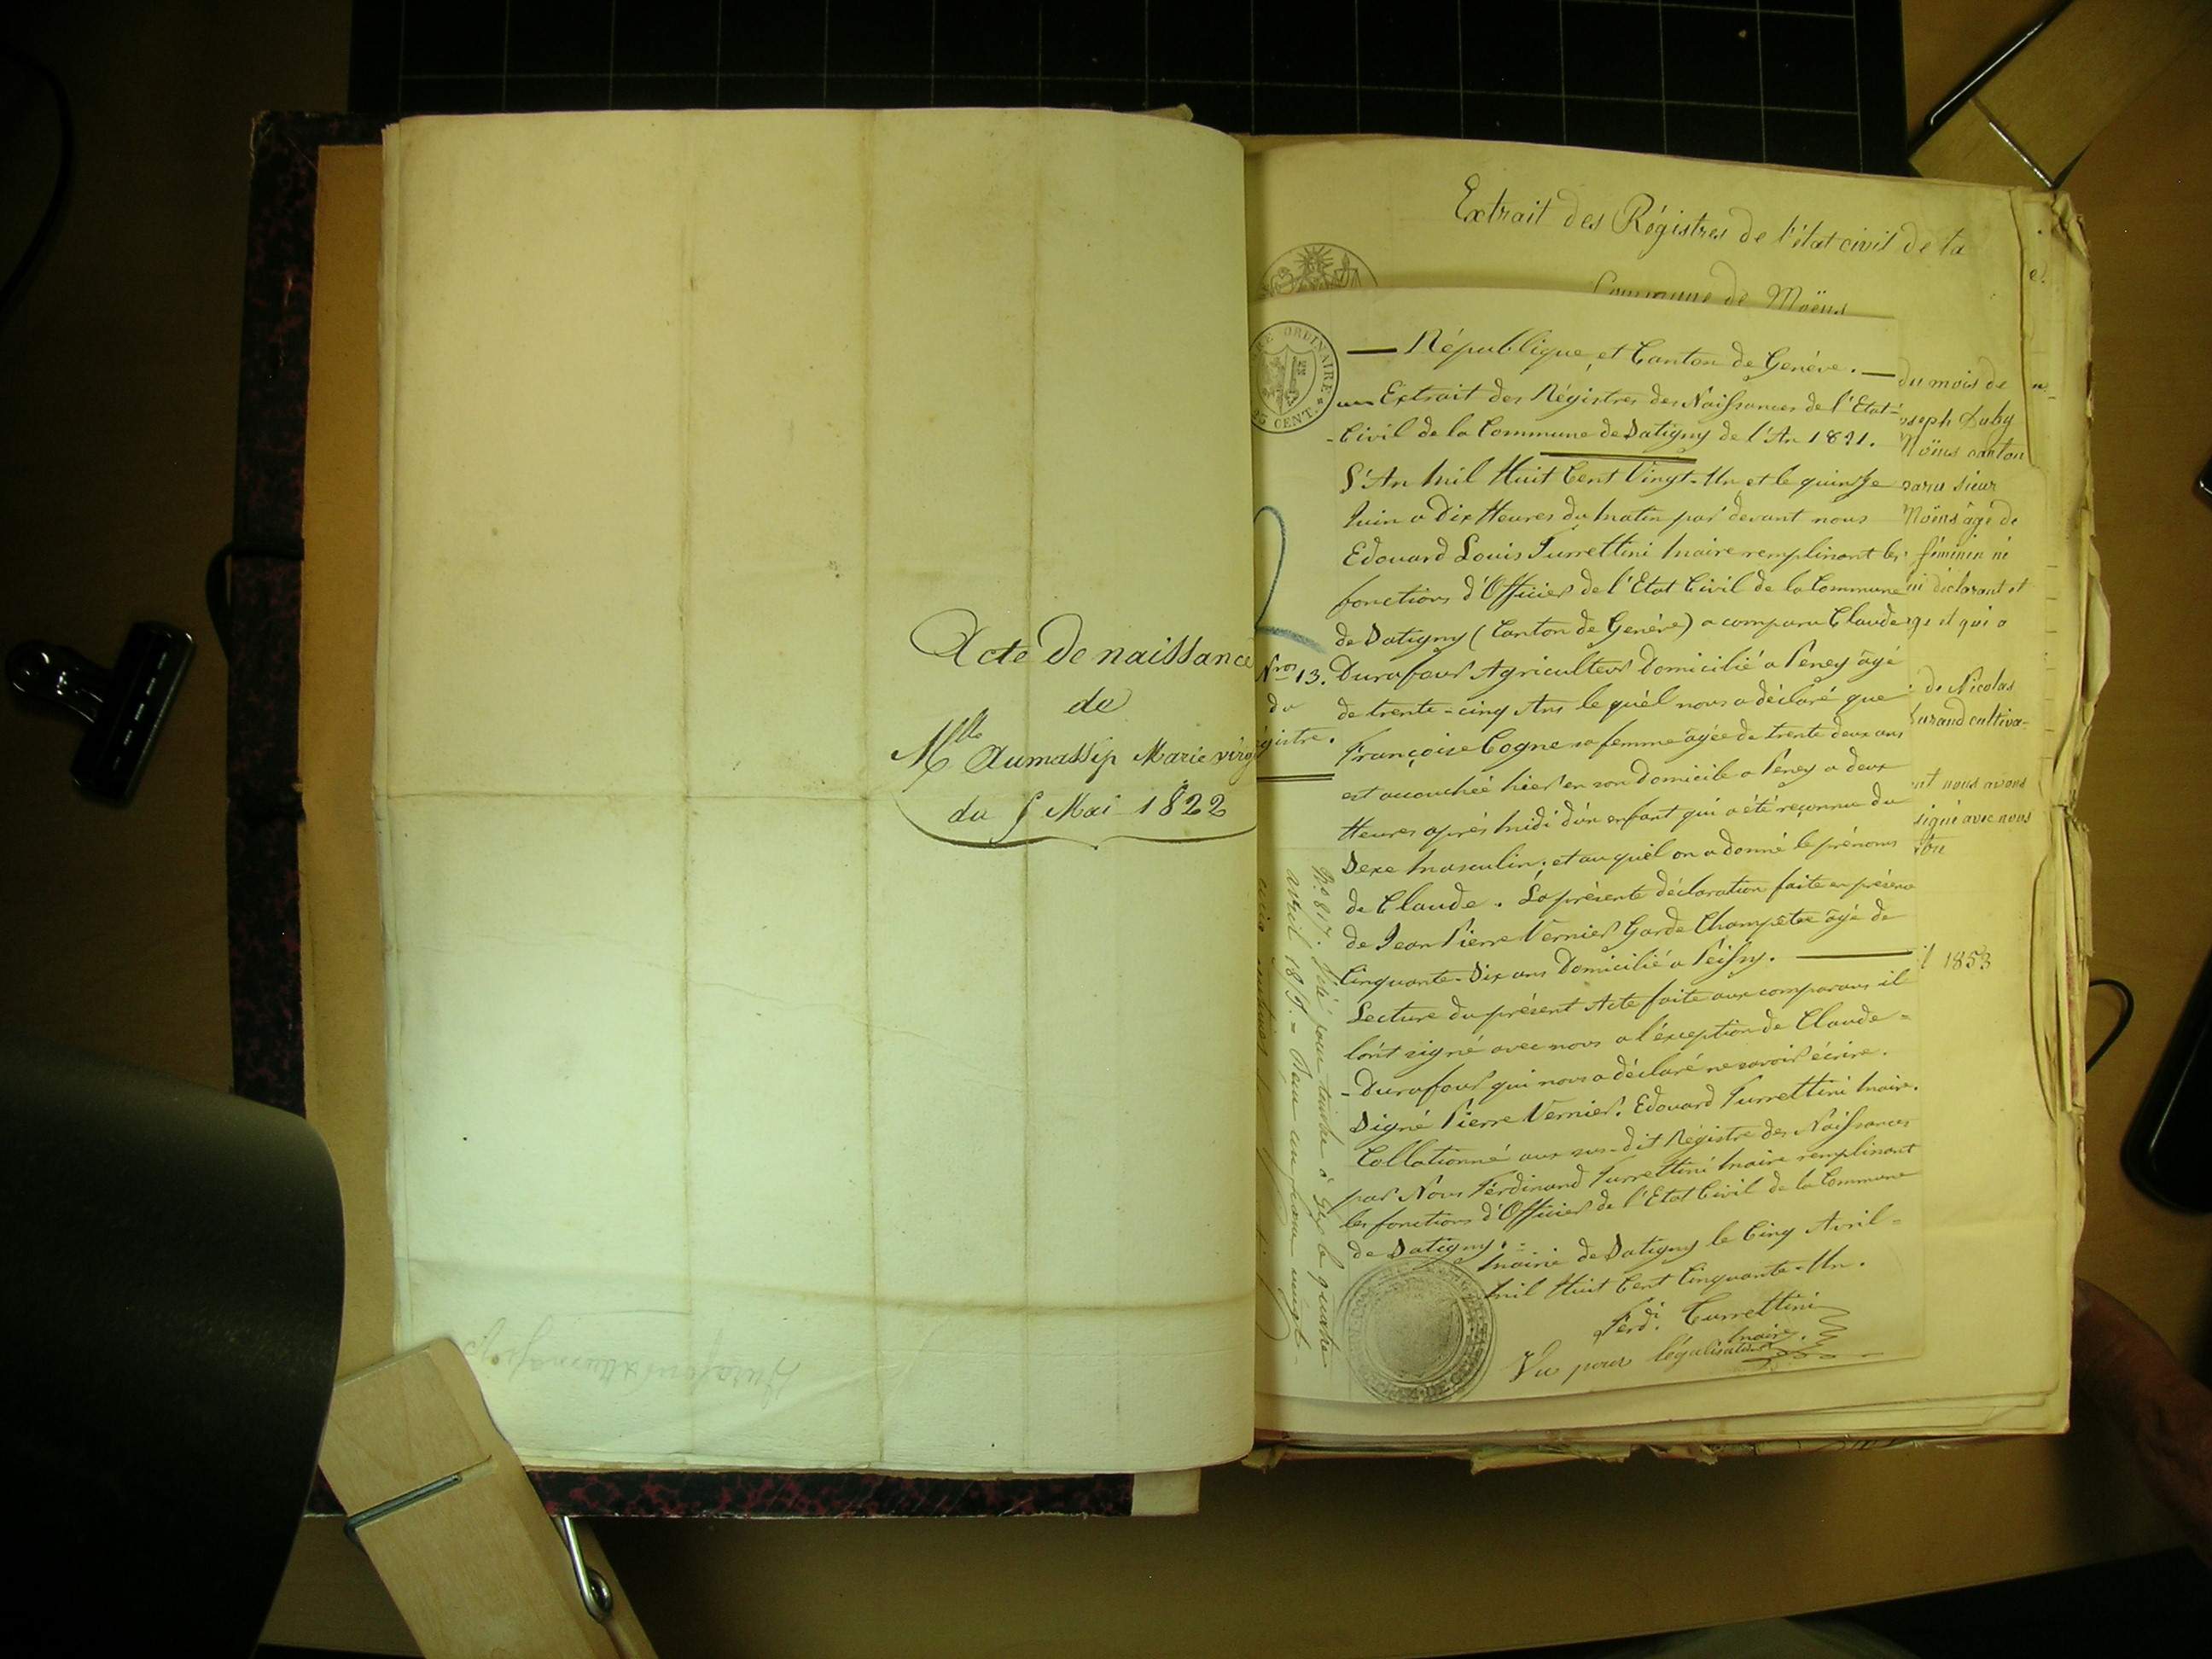 Acte de naissance
de
Mlle Aumassip Marie virg
du 5 Mai 1822
Extrait des Régistres de l'état civil de la
Commune de Moëns
ORDINAIRE
25 CENT.
République et Canton de Genève.
Extrait des Régistres des Naissances de l'Etat-
-Civil de la Commune de Satigny de l'An 1821.
L'An Mil Huit Cent Vingt-Un et le quinze
Juin a Dix Heures du Matin par devant nous
Edouard Louis Turrettini Maire remplissant les
fonctions d'Officier de l'Etat Civil de la Commune
de Satigny (Canton de Genève) a comparu Claude
Nros 13.
du
gistre.
Durafour Agriculteur Domicilié a Peney âgé
de trente-cinq Ans le quèl nous a déclaré que
Françoise Cogne sa femme âgée de trente deux ans
est accouchée hier en son Domicile a Peney a deux
Heures après Midi d'ún enfant qui a été reconnu du
Sexe Masculin; et au quèl on a donné le prénoms
de Claude. La présente déclaration faite en présence
de Jean Pierre Vernier Garde Champêtre âgé de
Cinquante-Dix ans Domicilié a Peissy.
Lecture du présent Acte faite aux comparans il
lont signé avec nous a l'éxception de Claude-
-Durafour qui nous a déclaré ne savoir écrire.
Signé Pierre Vernier. Edouard Turrettini Maire.
Collationné aux sus-dit Régistre des Naissances
par Nous Ferdinand Turrettini Maire remplissant
les fonctions d'Officier de l'Etat Civil de la Commune
de Satigny.
Mairie de Satigny le Cinq Avril-
Mil Huit Cent Cinquante-Un.
Ferdi. Turrettini
Maire.
Vu pour légalisation
No 817. Visé pour timbre à Gex le quatre
avril
du mois de
seph Duby
Moëns canton
paru sieur
Moëns âgé de
féminin né
ui déclarant et
et qui a
de Nicolas
Durand cultiva-
nt nous avons
signé avec nous
1853